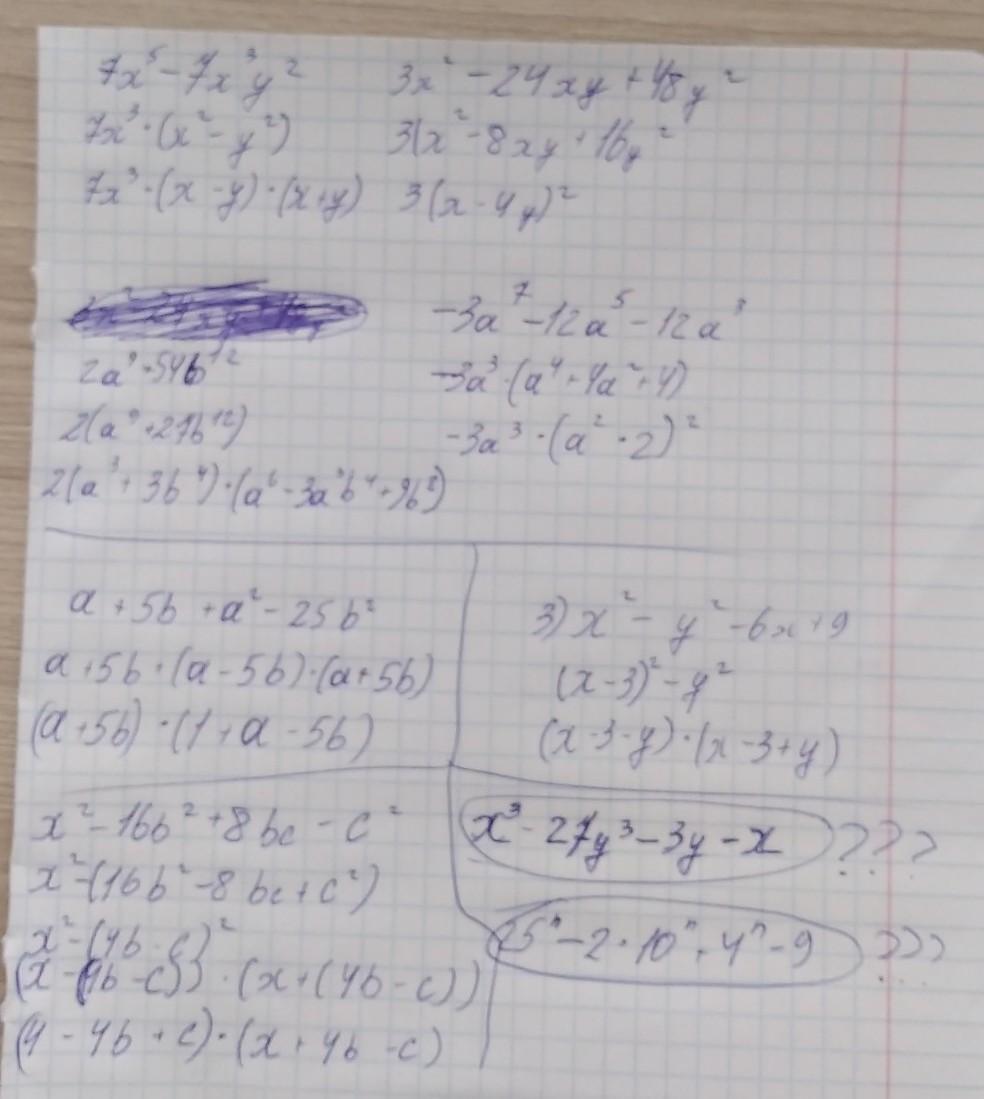 7x⁵ - 7x³y²
7x³·(x² - y²)
7x³·(x - y)·(x+y)
3x² - 24xy + 48y²
3(x² - 8xy + 16y²
3(x - 4y)²
2a⁹+54b¹²
2(a⁹+27b¹²)
2(a³+3b⁴)·(a⁶-3a³b⁴+9b⁸)
-3a⁷-12a⁵-12a³
-3a³·(a⁴+4a²+4)
-3a³·(a²+2)²
a+5b+a²-25b²
a+5b+(a-5b)·(a+5b)
(a+5b)·(1+a-5b)
3) x²-y²-6x+9
(x-3)²-y²
(x-3-y)·(x-3+y)
x²-16b²+8bc-c²
x²-(16b²-8bc+c²)
x²-(4b-c)²
(x-(4b-c))·(x+(4b-c))
(4-4b+c)·(x+4b-c)
x³-27y³-3y-x ???
25ⁿ-2·10ⁿ+4ⁿ-9 ???